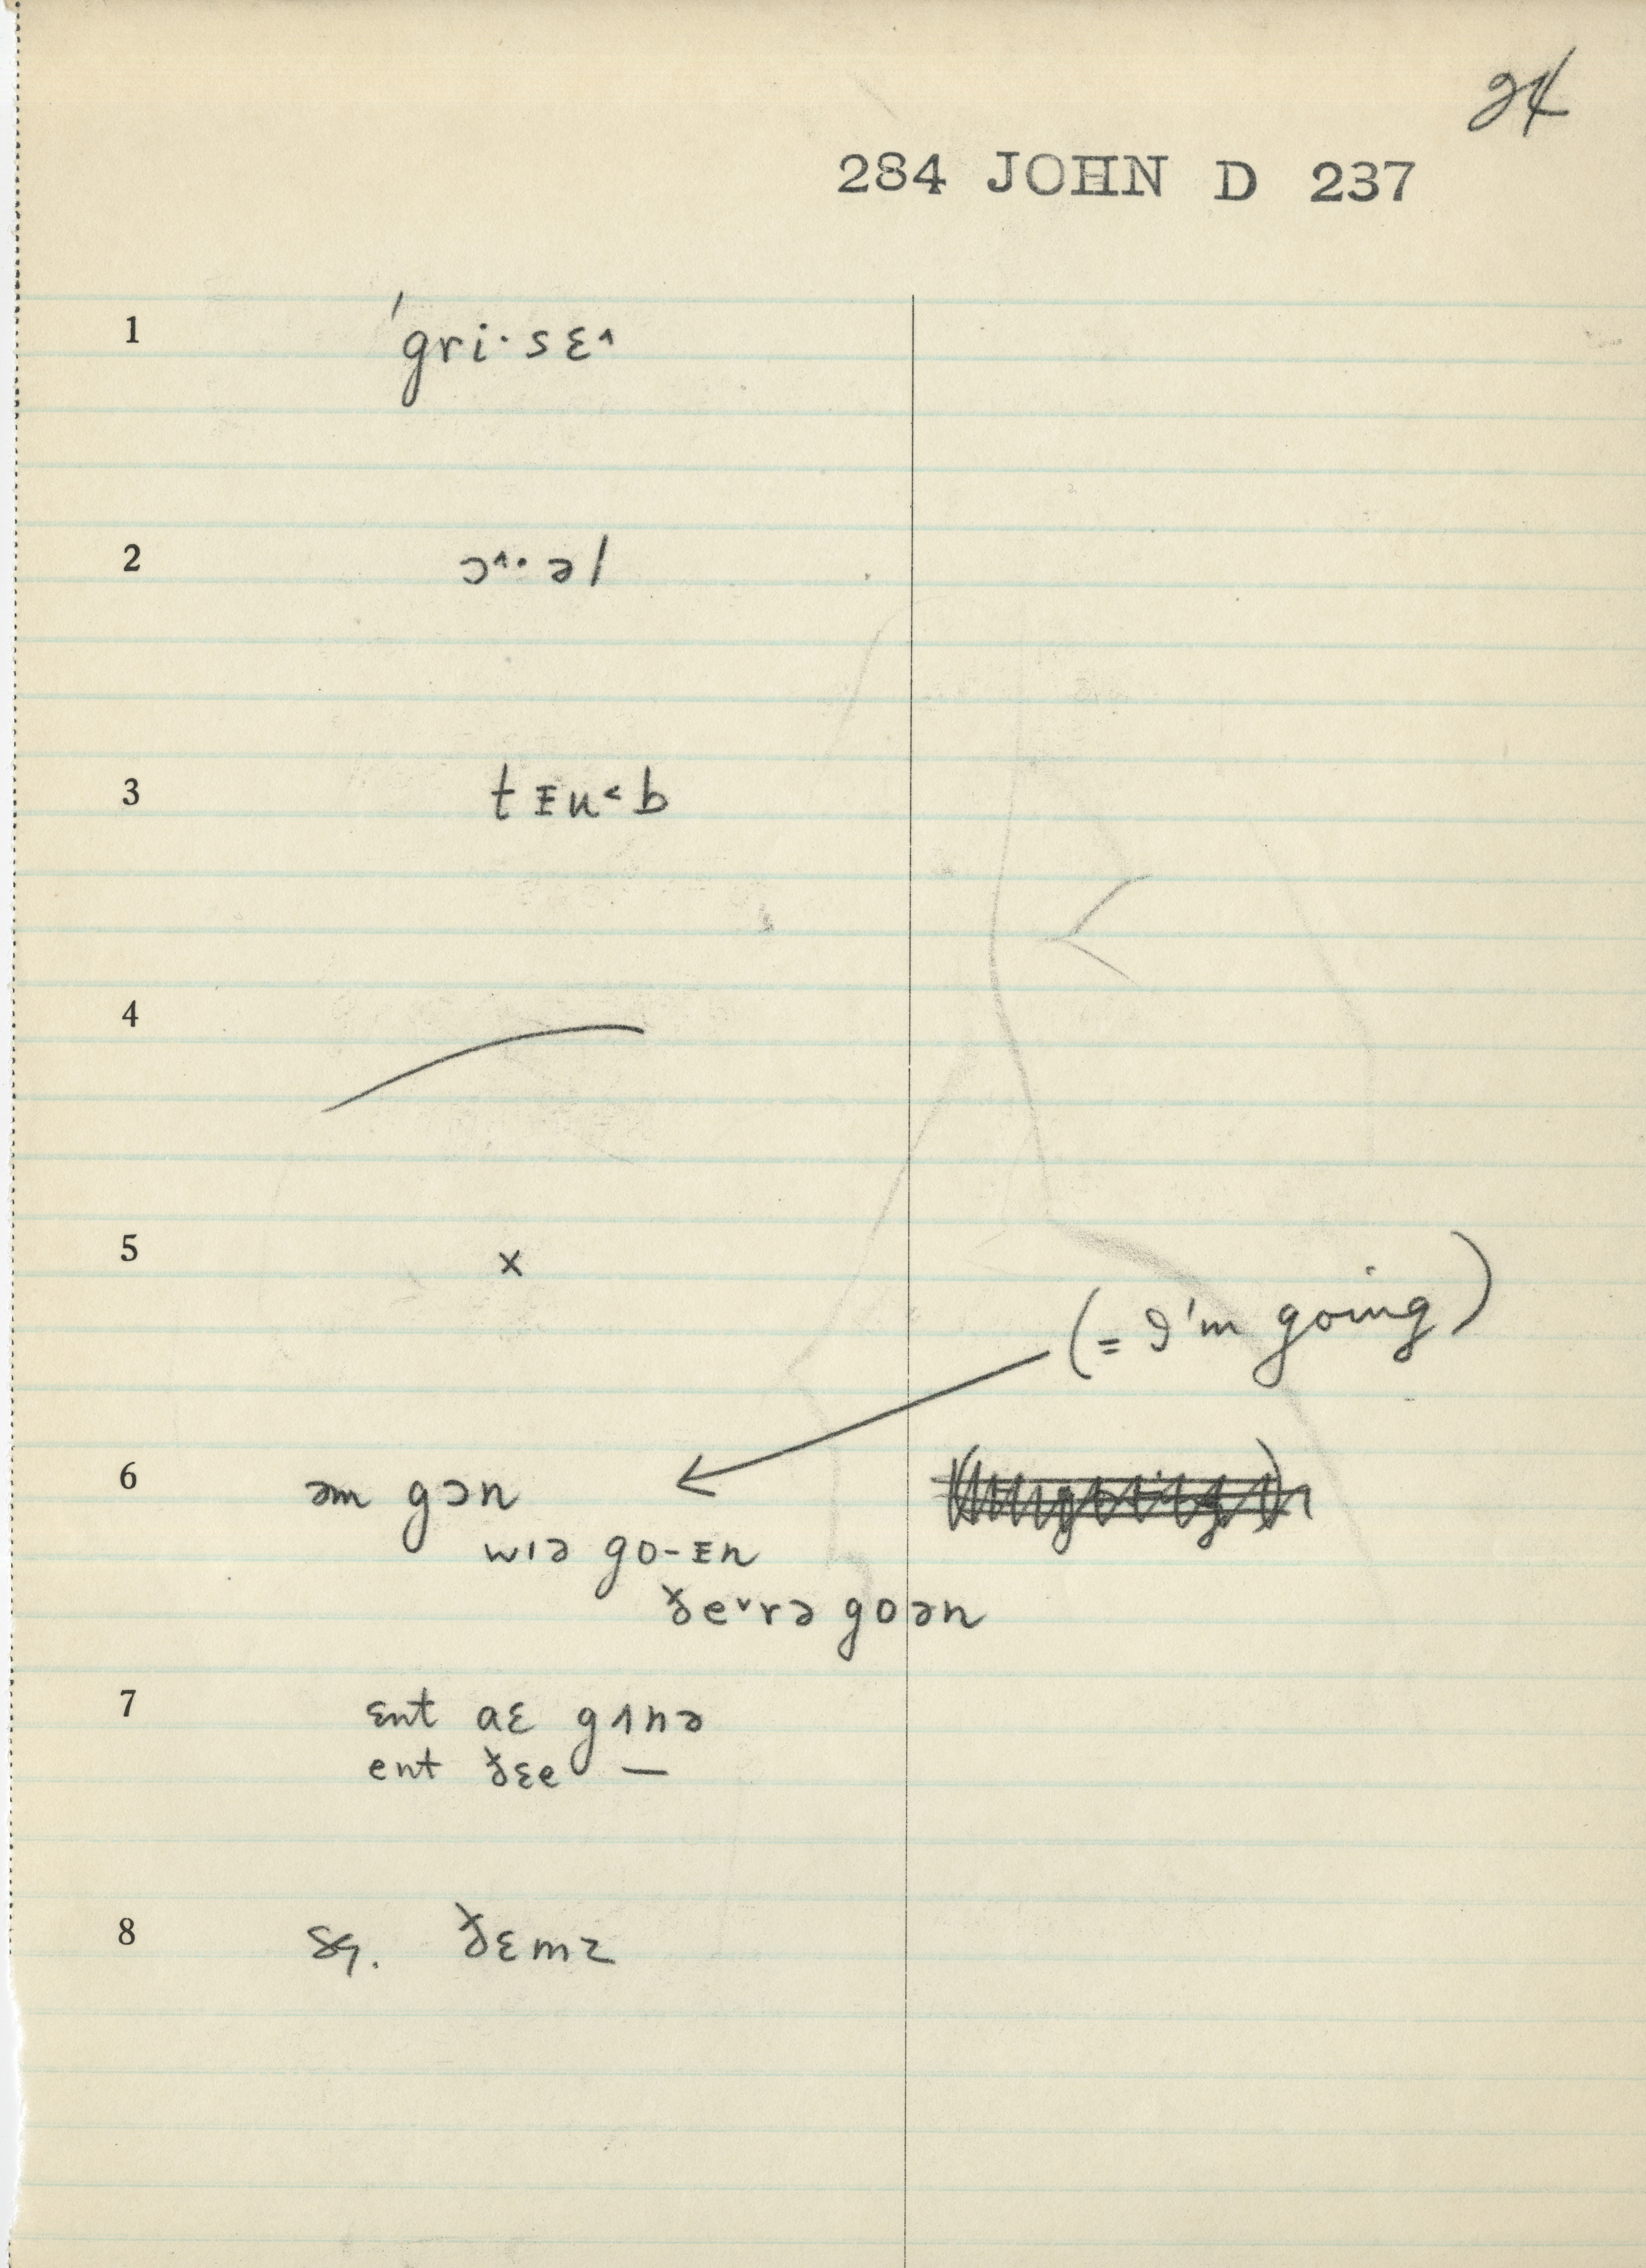 24
284 JOHN D 237
1 ˈgri·sɛ˄
2 ɔ˄·əl
3 tᵻu˂b
4
5 x
(= I'm going)
6 əm gɔn
wɪə go-ᵻn
ðe˅rə goən
7 ɛnt aɛ gʌnə
ent ðɛe —
8 sg. ðɛmz